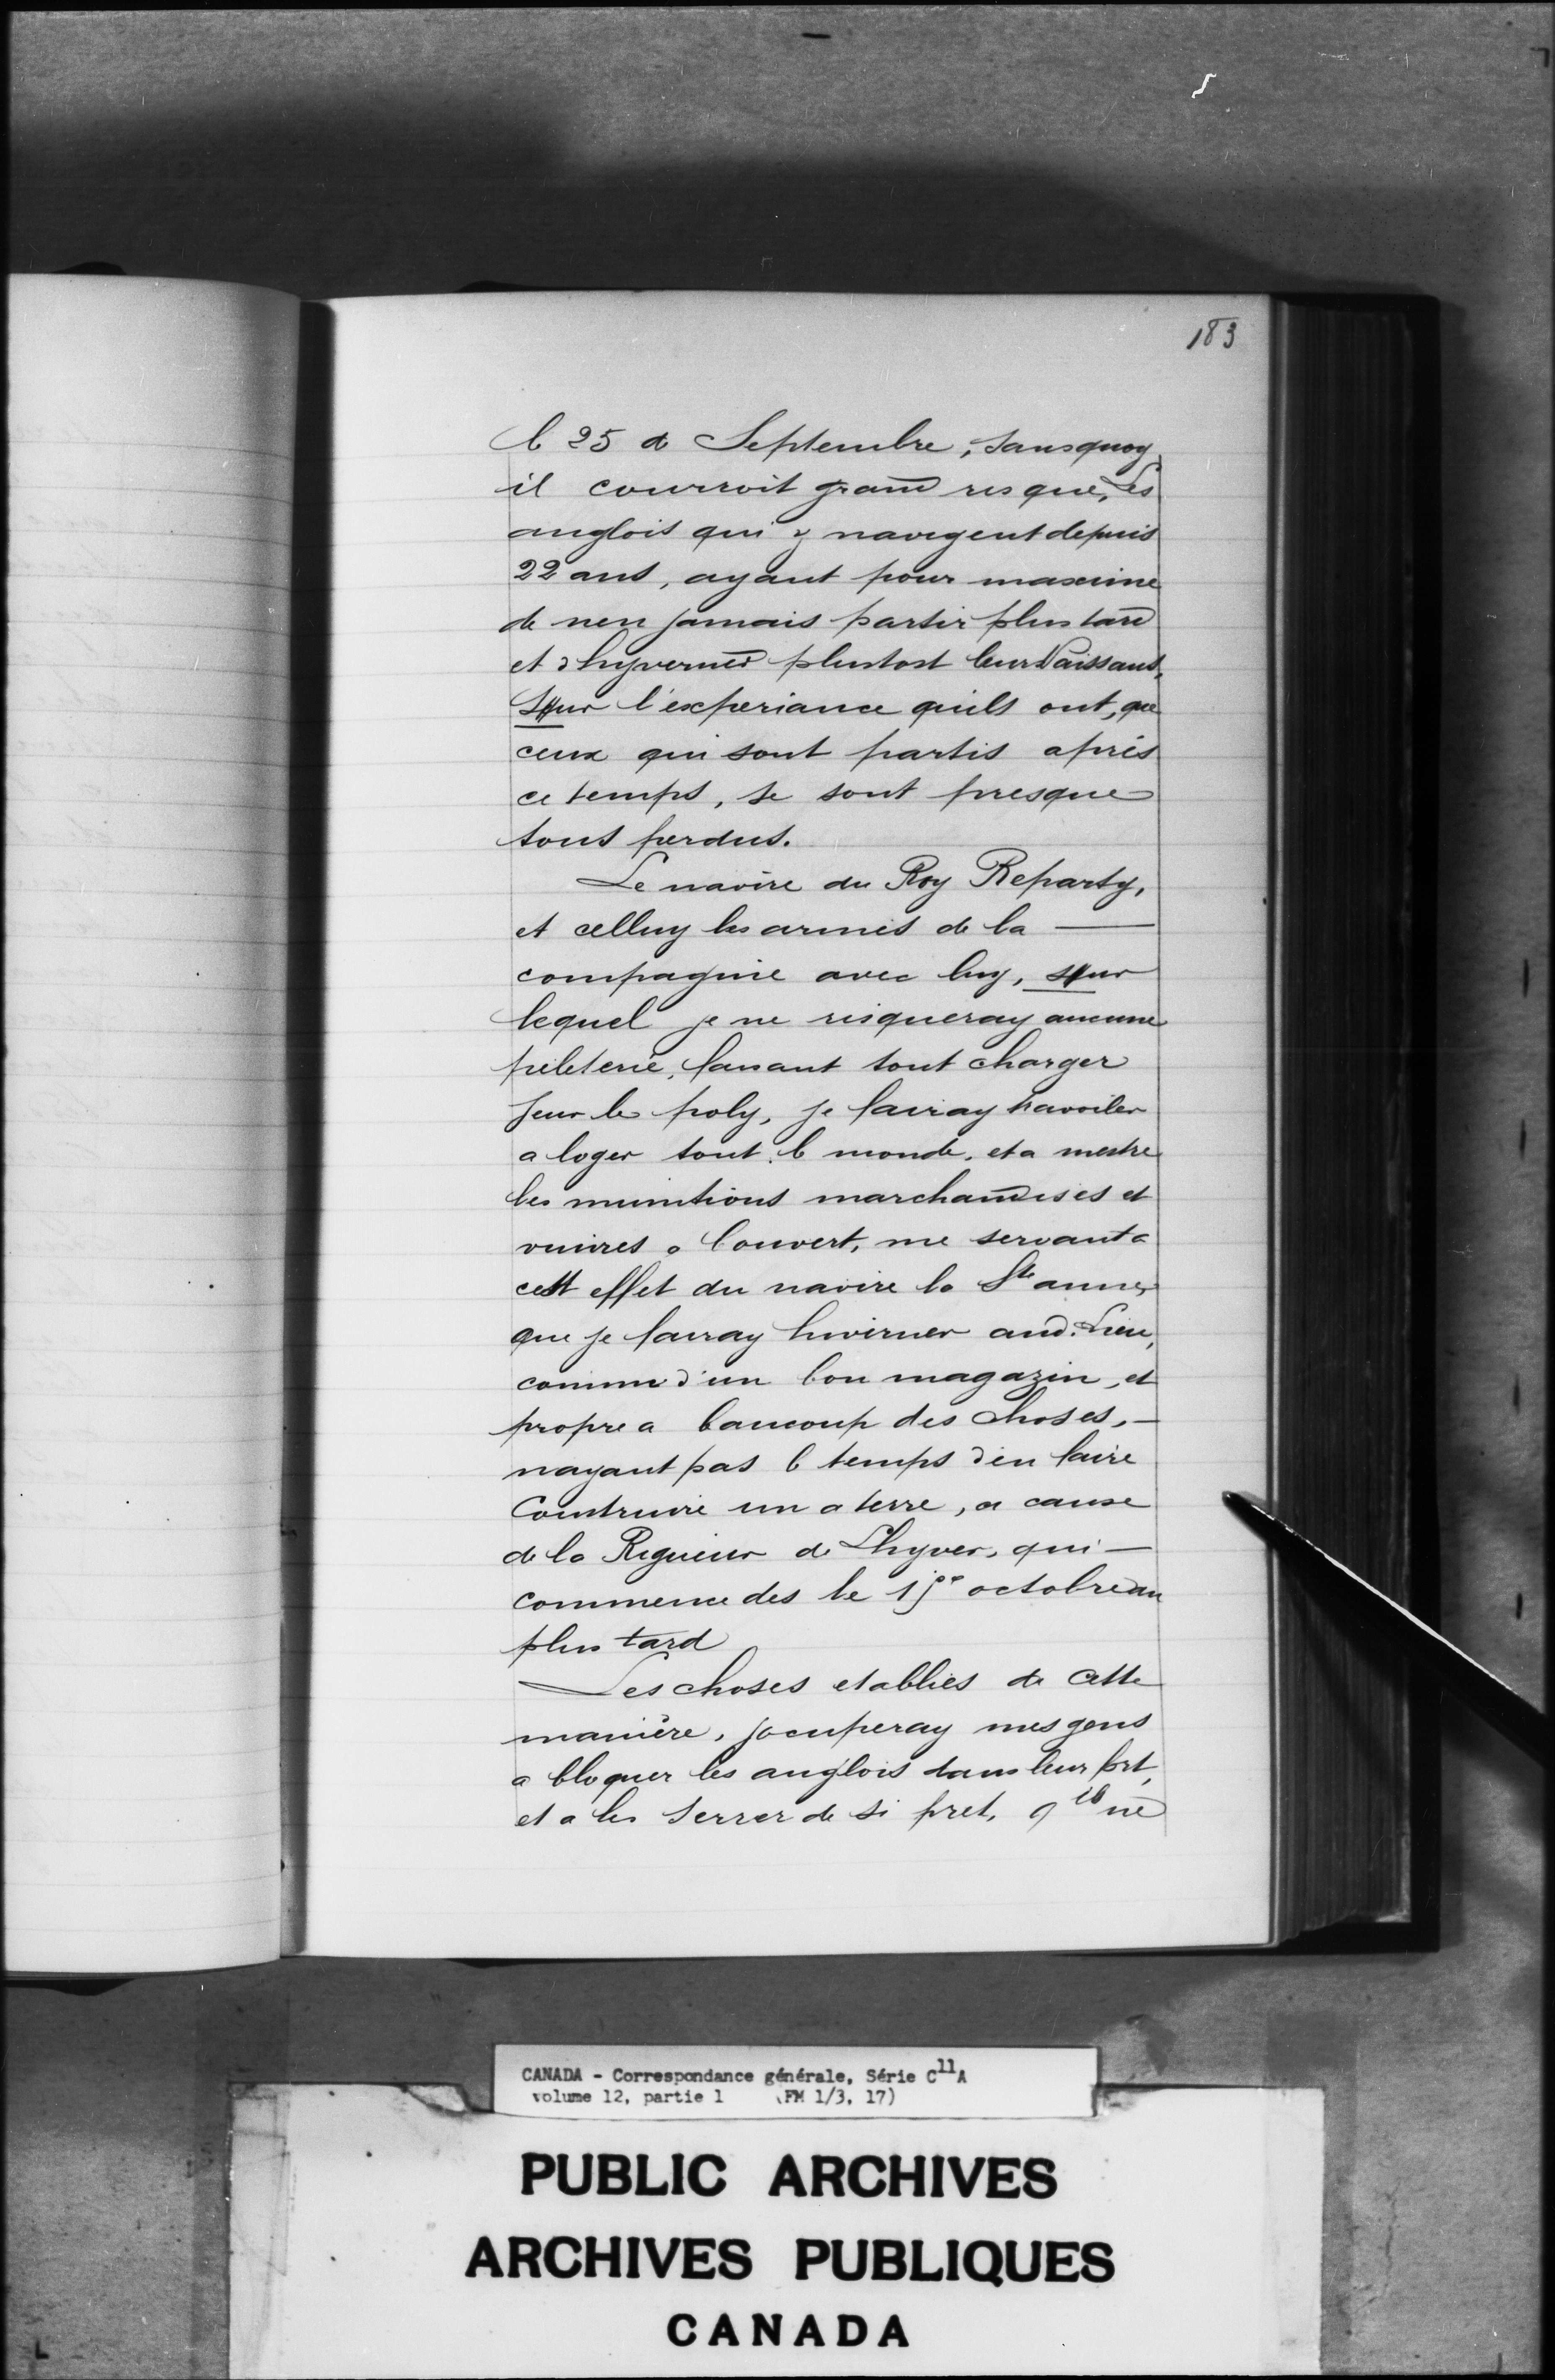 183
le 25 de Septembre, sans quoy
il courroit grand risque, Les
anglois qui y navigent depuis
22 ans, ayant pour maxime
de nen jamais partir plus tard
et dhyverner plustost leurs Vaissaus,
Sur l'experiance quils ont, que
ceux qui sont partis aprés
ce temps, se sont presque
tous perdus.
Le navire du Roy Reparty,
et celluy les armes de la —
compagnie avec luy, sur
lequel je ne risqueray aucune
pileterie, faisant tout charger
sur le poly, je fairay travailer
a loger tout le monde, et a mestre
les munitions marchandises et
vuivres a Couvert, me servant a
cest effet du navire la Ste anne,
que je fairay hiverner aud. Lieu,
comme d'un bon magazin, et
propre a baucoup des choses, —
nayant pas le temps d'en faire
Construire un a terre, a cause
de la Rigueur de Lhyver, qui —
commence des le octobre au
plus tard
Les choses establies de cette
manière, jocuperay mes gens
a bloquer les anglois dans leur fort,
et a les serrer de si pret, qils ne
CANADA - Correspondance générale, Série C11A
volume 12, partie 1 (FM 1/3, 17)
PUBLIC ARCHIVES
ARCHIVES PUBLIQUES
CANADA